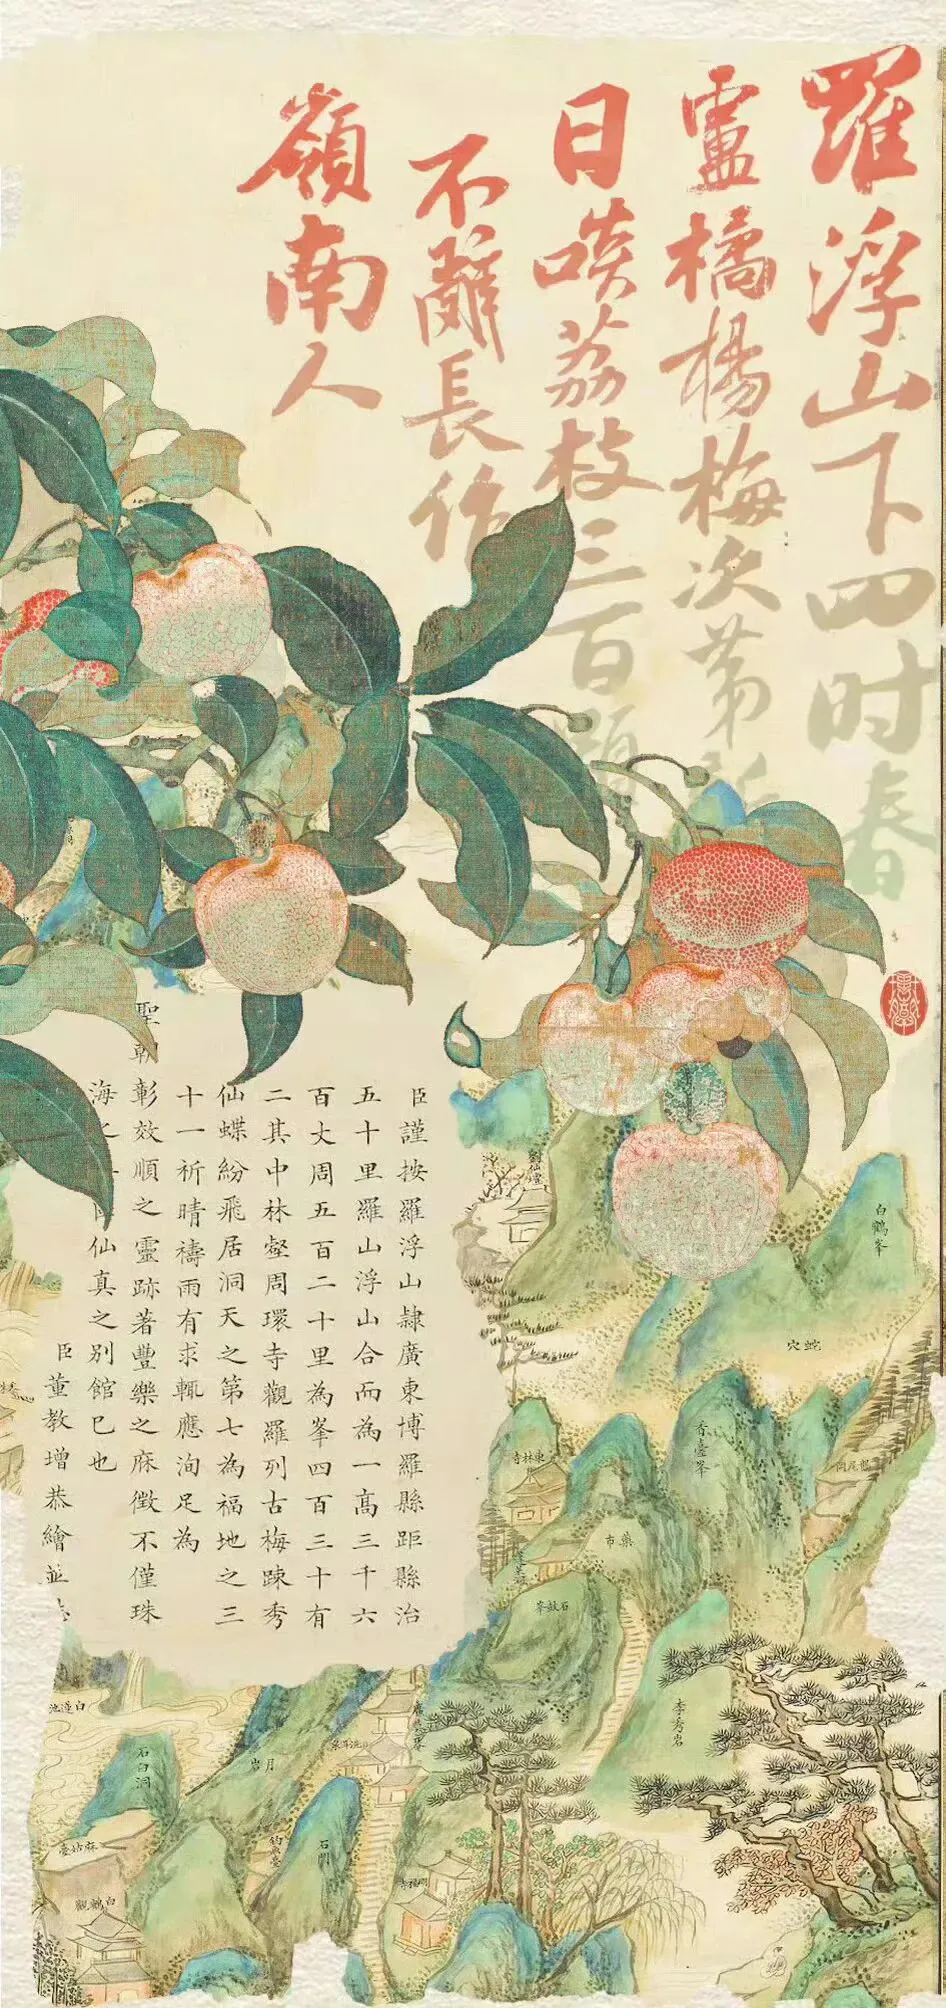 羅浮山下四时春
盧橘楊梅次第
日啖荔枝三百顆
不辭長作
嶺南人
臣謹按羅浮山隸廣東博羅縣距縣治
五十里羅山浮山合而為一高三千六
百丈周五百二十里為峯四百三十有
二其中林壑周環寺觀羅列古梅踈秀
仙蝶紛飛居洞天之第七為福地之三
十一祈晴禱雨有求輒應洵足為
聖朝彰效順之靈跡著豐樂之庥徵不僅珠
海之仙真之別館已也
臣董教增恭繪並
劉仙壇
白鶴峯
蛇穴
香臺峯
東林寺
藥市
石鼓峯
李秀岩
白蓮池
洗耳泉
石臼洞
月岩
麻姑臺
釣魚臺
石門
白鶴觀